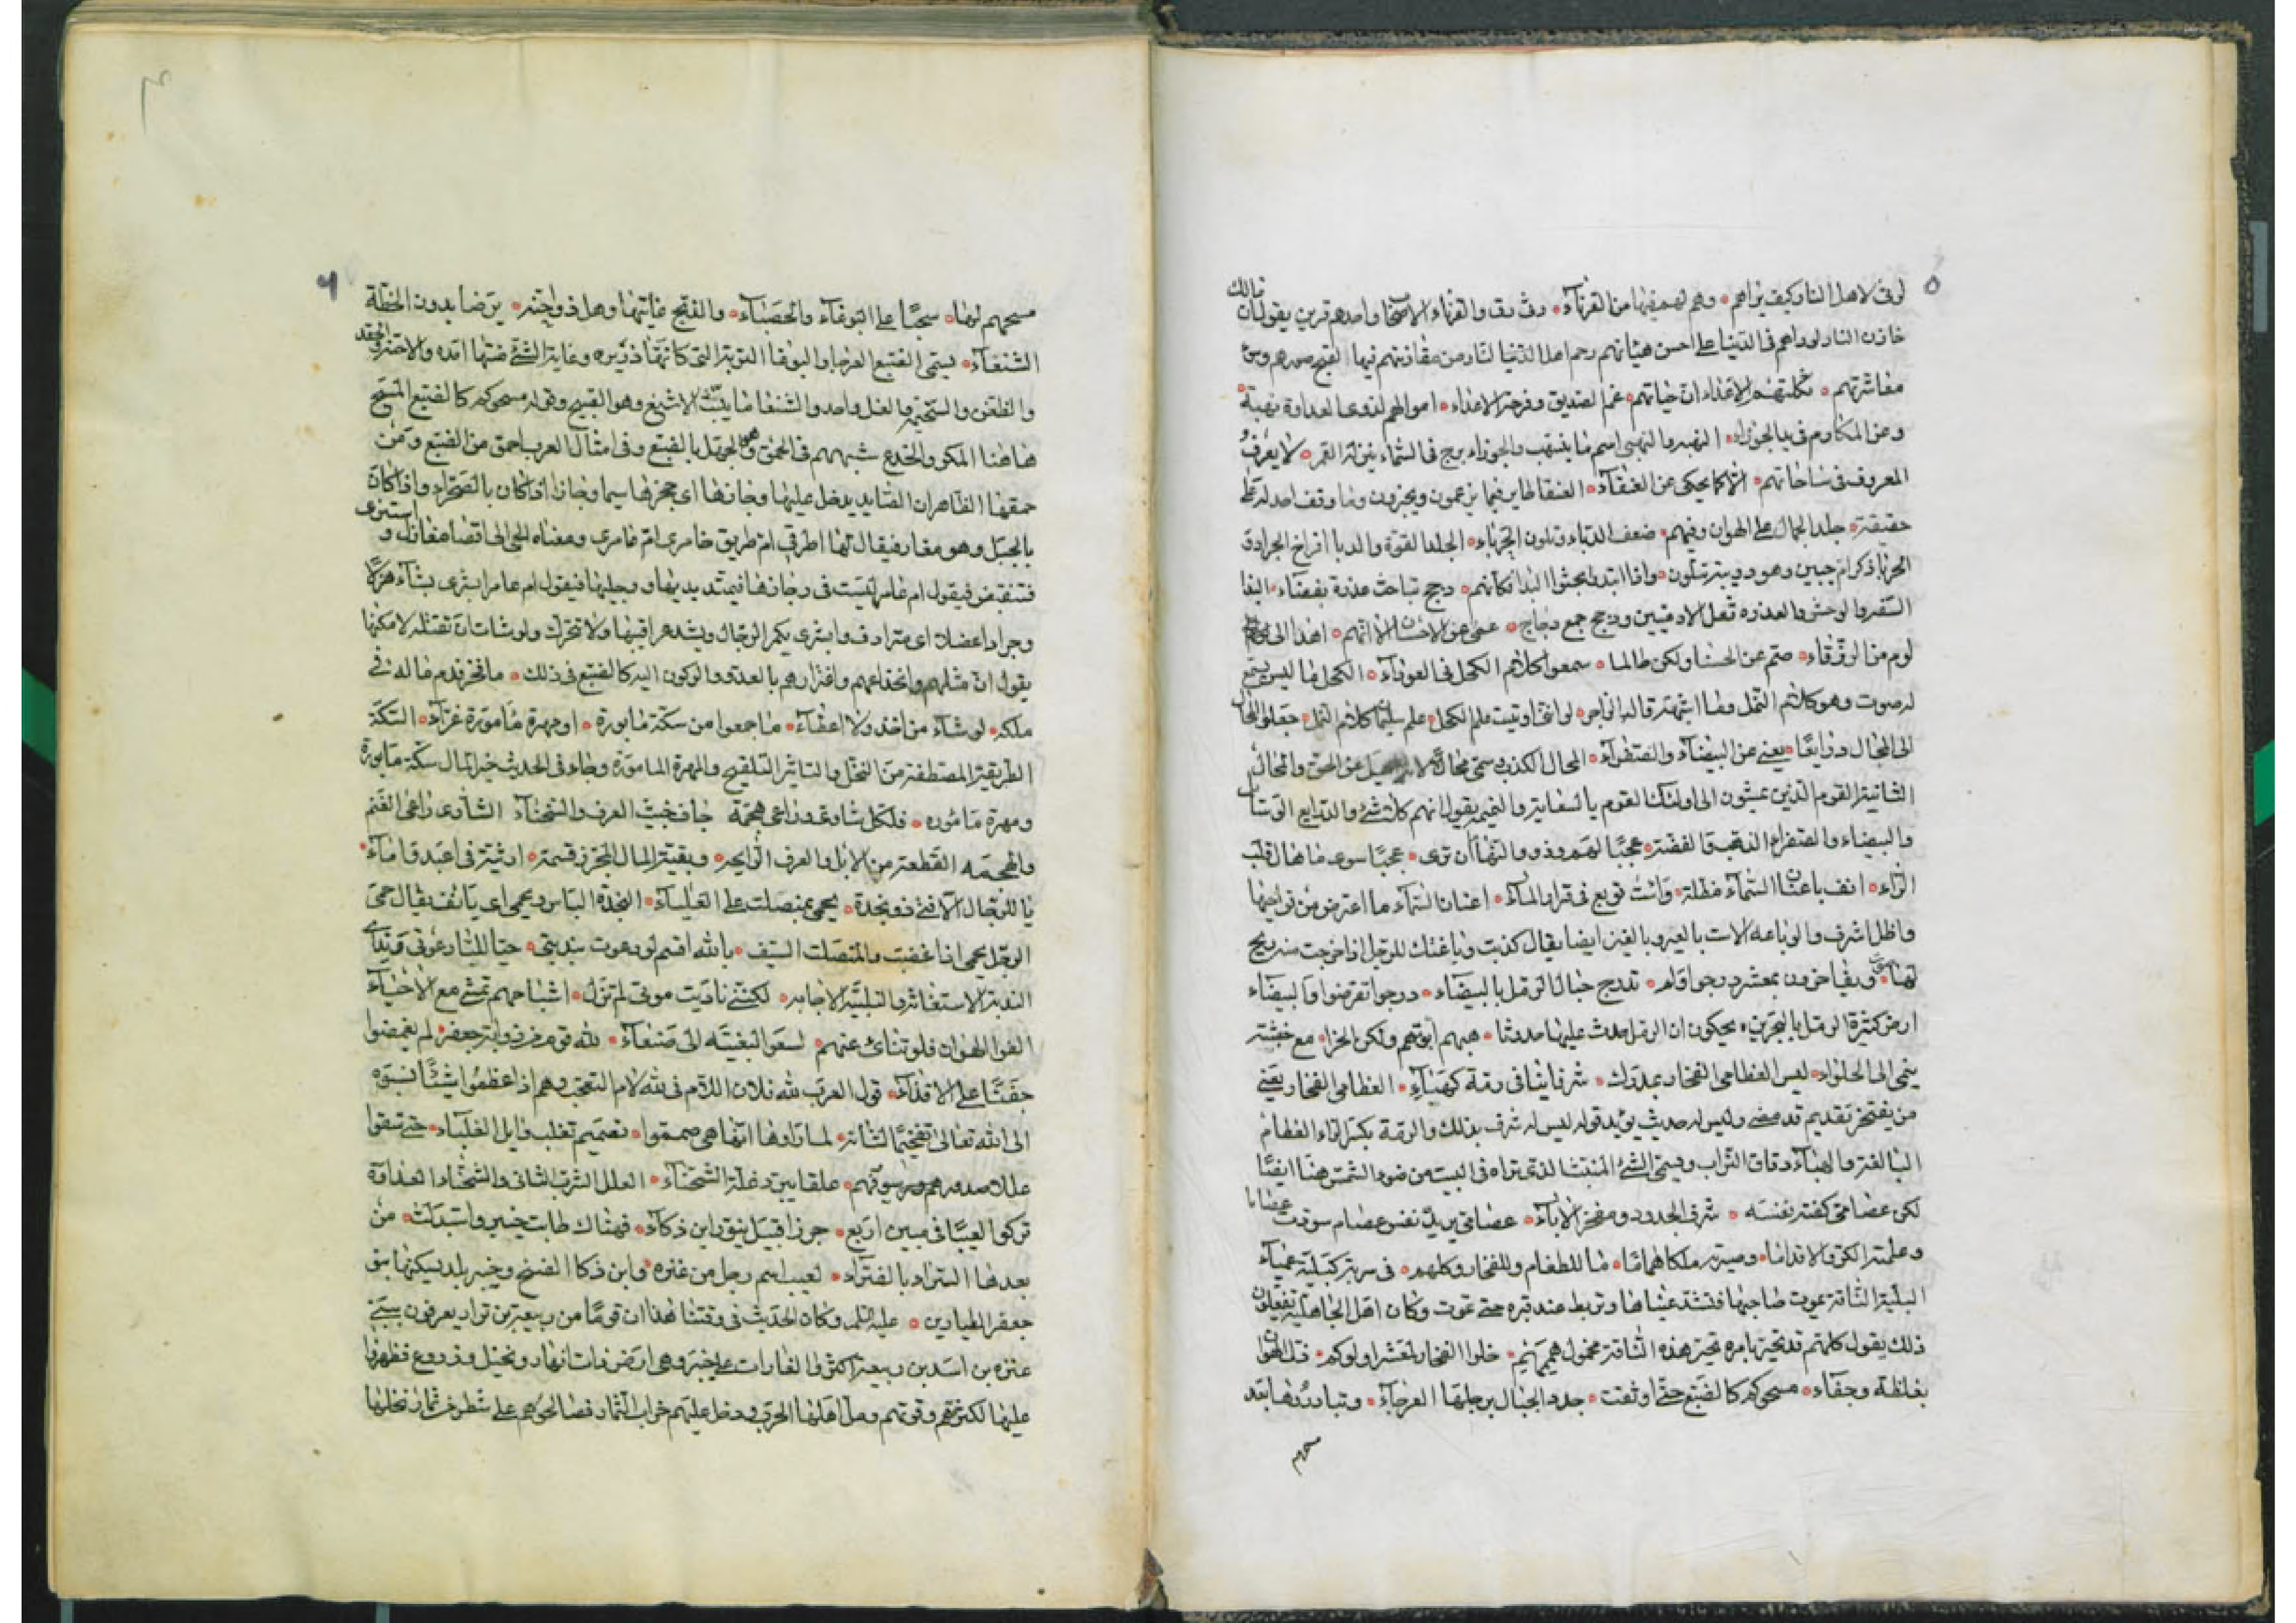 ٥
لوفى لاهل النار كيف يراهم ° وهم لهم فيها من القرناء ° والقرناء الاصحاب واحدهم قرين يقول ان مالك
خازن النار لو راهم فى الدنيا على احسن هيئاتهم رحم اهل الدنيا لنار من مقارنتهم فيها لقبح صورهم وسوء
معاشرتهم ° ثكلتهم الاعداء ان حياتهم ° غم الصديق وفرحة الاعداء ° اموالهم لذوى العداوة نهبة °
وعن المكارم فى يد الجوزاء ° النهبة والنهبى اسم ما ينتهب والجوزاء برج فى السماء ينزله القمر ° لا يعرف
المعروف فى ساحاتهم ° الا كما يحكى عن العنقاء ° العنقا طاير فيما يزعمون ويخبرون وما وقف احد له على
حقيقة ° جلد الجمال على الهوان وفيهم ° ضعف الدباء وتلون الحرباء ° الجلد القوة والدبا افراخ الجراد و
الحربا ذكر ام حبين وهو دويبة تتلون ° واذا ابتدا بحثوا البذا كانهم ° دجج تباحث عذرة بفضاء °
والعذره ثفل الادميين ودجج جمع دجاج ° عمى عن الاحسان الا انهم ° اهدا الى
لوم من الزرقاء ° صم عن الحسنا ولكن طالما ° سمعوا كلام الكحل فى العوراء ° الكحل ما ليس يسمع
له صوت وهو كلام النمل ومما اشتهر قاله الراجز ° لو اننى اوتيت علم الكحل ° علم سليمان كلام النمل ° جعلوا المحال
الى المحال ذرايعا ° يعنى عن البيضاء والصفراء ° المحال الكذب وسمى محال لانه عن الحق والمحال
الثانية القوم الذين يمشون الى اولئك القوم بالسعاية والنميمة يقول انهم كلاشئ والذرايع الوسايل
والبيضاء والصفراء الذهب والفضة ° عجبا لهم وذوو النها ان ترى ° عجبا سوى ما هال قلب
الراء ° انف باعنان السماء مظلة ° واست توبع فى قرار الماء ° اعنان السماء ما اعترض من نواحيها
واظل اشرف
لها ° وبقيا خزون بمعشر درجوا وهم ° تدرج حبال الرمل بالبيضاء ° درجوا تقرضوا والبيضاء
ارض كثيرة الرمل بالبحرين ° يحكون ان الرمل احدث عليها حدوثا ° هبهم ابوتهم ولكن الخرا ° مع خبثه
ينمى الى الحلواء ° ليس العظامى الفخار بمدرك ° شرفا بثانى رمة كهباء ° العظامى الفخار يعنى
من يفتخر بقديم قد مضى وليس له حديث يؤيد قوله ليس له شرف بذلك والرمة بكسر الراء العظام
البالية والهباء دقاق التراب ويسمى الشئ المنبث الذى تراه فى البيت من ضوء الشمس هبا ايضا
لكن عصامى كفته نفسه ° شرف الجدود ومفخر الاباء ° عصامى يريد نفس عصام سودت عصاما
وعلمته الكر والاقداما ° وصيرته ملكا هماما ° ما للطغام وللفخار وكلهم ° فى كبلية عمياء
البلية الناقة يموت صاحبها فتشد عيناها وتربط عند قبره حتى تموت وكان اهل الجاهلية يفعلون
ذلك يقول كلهم قد تحير بامره تحير هذه الناقة ° خلوا الفخار لمعشر اولوكم ° قتل الهوان
بغلظة وجفاء ° مسحوكم كالضبع حتى اوثقت ° جدد الحبال برجلها العرجاء ° وتبادروها بعد
مسحهم
٦
مسحهم لها ° سحبا على البوغاء والحصباء ° والقبح غايتها وهل ذو اجنه ° يرضا بدون الخطة
الشنعاء ° يسمى الضبع العرجا والبوغا التربة التى كانها ذريره وغاية الشئ منتها امده والاحنه الحقد
والضغن والسخيمة والغل واحد والشنعا تانيث الاشنع وهو القبيح وقوله مسحوكم كالضبع المسح
هاهنا المكر والخدع شبههم فى الحمق والجهل بالضبع وفى امثال العرب احمق من الضبع ومن
حمقها الظاهر ان الصايد يدخل عليها وجارها اى جحرها سيما وجار اذا كان بالصحراء واذا كان
بالجبل وهو مغار فيقال لها اطرقى ام طريق خامرى ام عامر ومعناه الجى الى اقصا مغارك و استترى
فتنقبض فيقول ام عامر ليست فى وجارها فيمتد يديها ورجليها فيقول ام عامر ابشرى بشاء هزلى
وجراد اعضلا اى مترادف وابشرى بكمر الرجال ويشد عراقيبها ولا تتحرك ولو شات ان تقتله لامكنها
يقول ان مثلهم وانخداعهم واغترارهم بالعدو والركون اليه كالضبع فى ذلك ° ما فخر فدم ماله فى
ملكه ° لو شاء من اخذ ولا اعطاء ° ما جمعوا من سكة مابورة ° او مهرة مامورة غراء ° السكة
الطريقة المصطفة من النخل والتابير التلقيح والمهرة المامورة وجاء فى الحديث خير المال سكة مابورة
ومهرة مامورة ° فلكل شاوى وراعى هجمة جاف خبيث العرف والسحناء الشاوى راعى الغنم
والهجمة القطعة من الابل والعرف الرايحة ° وبقية المال المجزى قسمة ° ارثية فى اعبد واماء °
يا للرجال الا فتى ذو نجدة ° يحمى بمنصلت على العلياء ° النجدة الباس ويحمى اى يانف يقال حمى
الرجل يحمى اذا غضب والمنصلت السيف ° بالله اقسم لو دعوت بندبتى ° حيا للبا دعوتى وندائى
الندبة الاستغاثة والتلبية الاجابة ° لكننى ناديت موتى لم تزل ° اشباحهم تمشى مع الاحياء
الفوا الهوان فلو تنائ عنهم ° لسعوا لبغيته الى صنعاء ° لله قوم من ذوابة جعفر لم يغمضوا
جفنا على الاقذاء ° قول العرب لله فلان اللام فى لله لام التعجب وهم اذا عظموا شيئا نسبوه
الى الله تعالى تفخيما لشانه ° لما راوها انها هى صمموا ° تصميم تغلب وايل الغلباء ° حتى سقوا
عللا صدورهم وسيوفهم ° علقا يبرد غلة الشحناء ° العلل الشرب الثانى والشحناء العداوة
تركوا لعيبا فى مبين اربع ° جزرا قبيل بثوق ابن ذكاء ° فهناك طابت خيبر واستبدلت ° من
بعدها السراء بالضراء ° لعيب اسم رجل من عنزه وابن ذكا الصبح وخيبر بلد يسكنها بنو
جعفر الطيارين ° عليه السلم وكان الحديث فى وقتنا هذا ان قوما من ربيعة بن نزار يعرفون ببنى
عنزه بن اسد بن ربيعة اكثروا الغارات على خيبر وهى ارض ذات انهار ونخيل وزروع فظهروا
عليها لكثرتهم وقوتهم ومل اهلها الحرب ودخل عليهم خراب الثمار فصالحوهم على شطر من ثمار نخلها